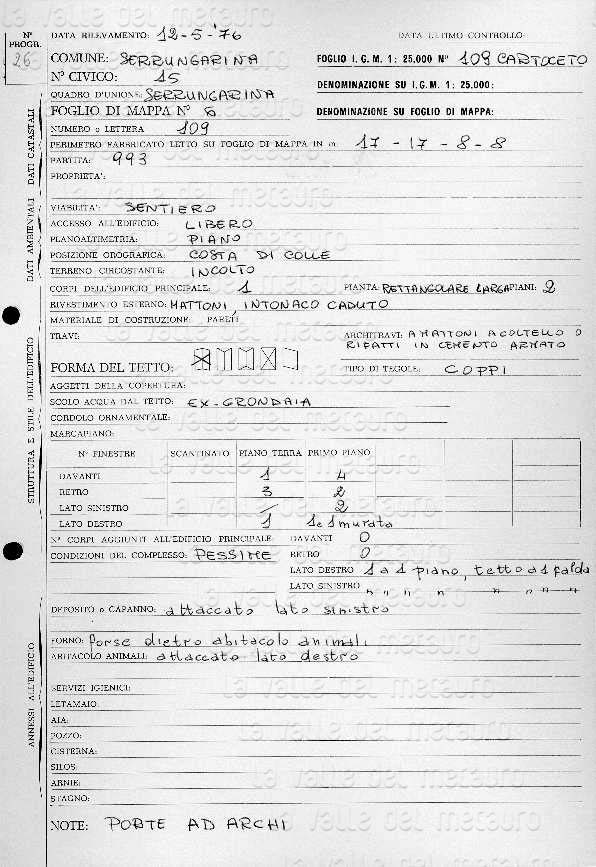 N° PROGR. 26
DATA RILEVAMENTO: 12-5-'76 DATA ULTIMO CONTROLLO:
COMUNE: SERRUNGARINA FOGLIO I.G.M. 1: 25.000 N° 109 CARTOCETO
N° CIVICO: 15 DENOMINAZIONE SU I.G.M. 1: 25.000:
QUADRO D'UNIONE: SERRUNGARINA
FOGLIO DI MAPPA N° 6 DENOMINAZIONE SU FOGLIO DI MAPPA:
NUMERO o LETTERA 109
PERIMETRO FABBRICATO LETTO SU FOGLIO DI MAPPA IN m 17 - 17 - 8 - 8
PARTITA: 993
PROPRIETA':
DATI CATASTALI
VIABILITA': SENTIERO
ACCESSO ALL'EDIFICIO: LIBERO
PLANOALTIMETRIA: PIANO
POSIZIONE OROGRAFICA: COSTA DI COLLE
TERRENO CIRCOSTANTE: INCOLTO
DATI AMBIENTALI
CORPI DELL'EDIFICIO PRINCIPALE: 1 PIANTA: RETTANGOLARE LARGA PIANI: 2
RIVESTIMENTO ESTERNO: MATTONI, INTONACO CADUTO
MATERIALE DI COSTRUZIONE: PARETI
TRAVI: ARCHITRAVI: A MATTONI A COLTELLO O
RIFATTI IN CEMENTO ARMATO
FORMA DEL TETTO: TIPO DI TEGOLE: COPPI
AGGETTI DELLA COPERTURA:
SCOLO ACQUA DAL TETTO: EX-GRONDAIA
CORDOLO ORNAMENTALE:
MARCAPIANO:
STRUTTURA E STILE DELL'EDIFICIO
N° FINESTRE SCANTINATO PIANO TERRA PRIMO PIANO
DAVANTI 1 4
RETRO 3 2
LATO SINISTRO / 2
LATO DESTRO 1 1 e 1 murata
N° CORPI AGGIUNTI ALL'EDIFICIO PRINCIPALE: DAVANTI 0
CONDIZIONI DEL COMPLESSO: PESSIME RETRO 0
LATO DESTRO 1 a 1 piano, tetto a 1 falda
LATO SINISTRO " " " " " " " "
DEPOSITO o CAPANNO: attaccato lato sinistro
FORNO: forse dietro abitacolo animali
ABITACOLO ANIMALI: attaccato lato destro
SERVIZI IGIENICI:
LETAMAIO:
AIA:
POZZO:
CISTERNA:
SILOS:
ARNIE:
STAGNO:
ANNESSI ALL'EDIFICIO
NOTE: PORTE AD ARCHI
la valle del metauro